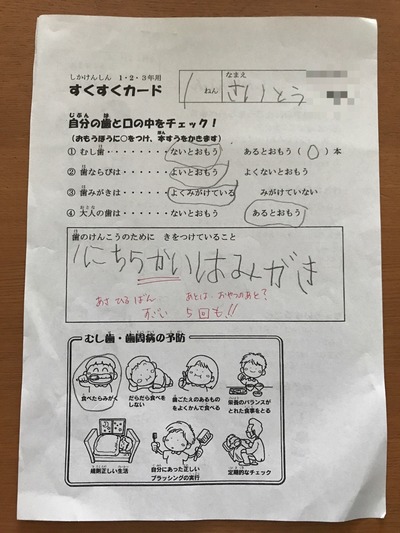 しかけんしん 1・2・3年用
すくすくカード
1ねん
なまえ
さいとう
自分の歯と口の中をチェック!
(おもうほうに○をつけ、本すうをかきます)
① むし歯・・・・・・・・ないとおもう あるとおもう(0)本
② 歯ならびは・・・・・・よいとおもう よくないとおもう
③ 歯みがきは・・・・・・よくみがけている みがけていない
④ 大人の歯は・・・・・・ないとおもう あるとおもう
歯のけんこうのために きをつけていること
1にちらかいはみがき
あさ ひる ばん あとは、おやつのあと?
すごい 5回も!!
むし歯・歯周病の予防
食べたらみがく
だらだら食べを
しない
歯ごたえのあるもの
をよくかんで食べる
栄養のバランスが
とれた食事をとる
規則正しい生活
自分にあった正しい
ブラッシングの実行
定期的なチェック